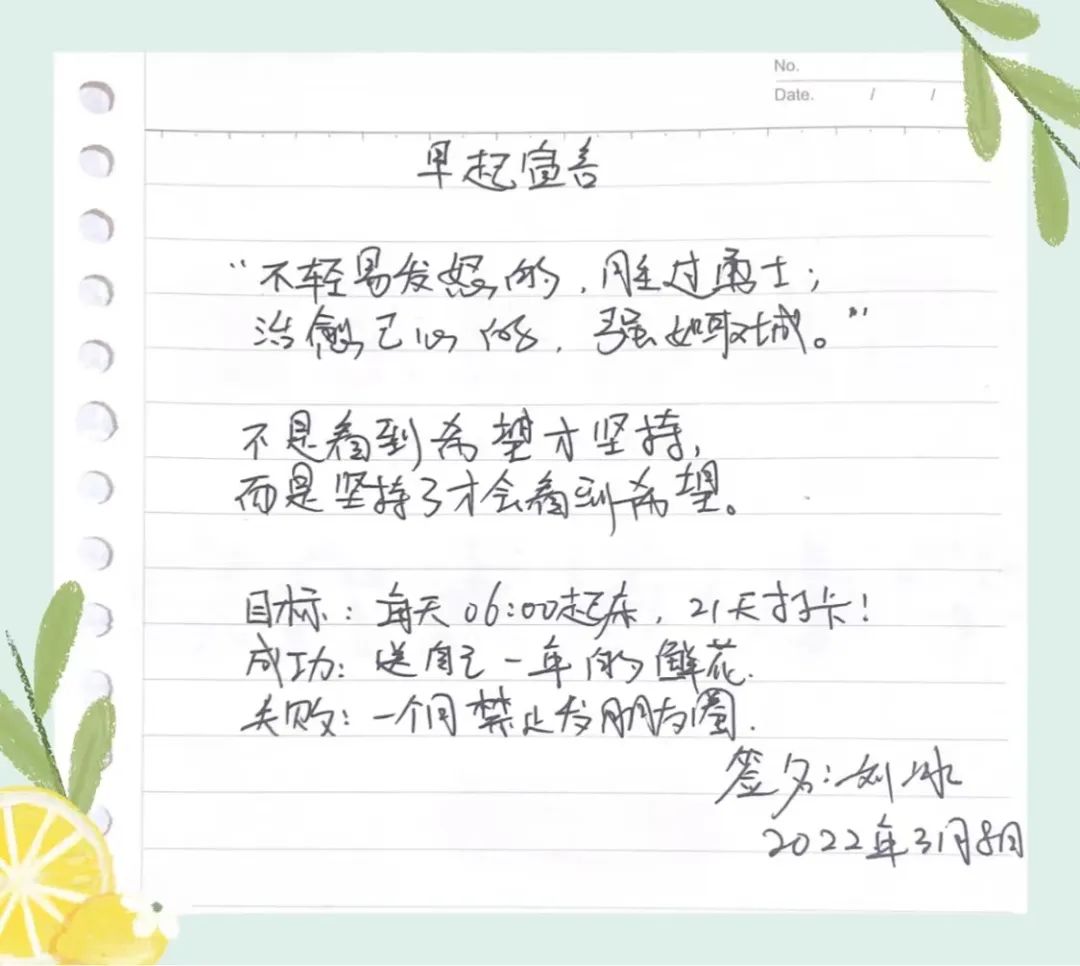 No.
Date. / /
早起宣言
“不轻易发怒的，胜过勇士；
治愈己心的，强如取城。”
不是看到希望才坚持，
而是坚持了才会看到希望。
目标：每天06:00起床，21天打卡！
成功：送自己一年的鲜花.
失败：一个月禁止发朋友圈.
签名：刘冰
2022年3月8日